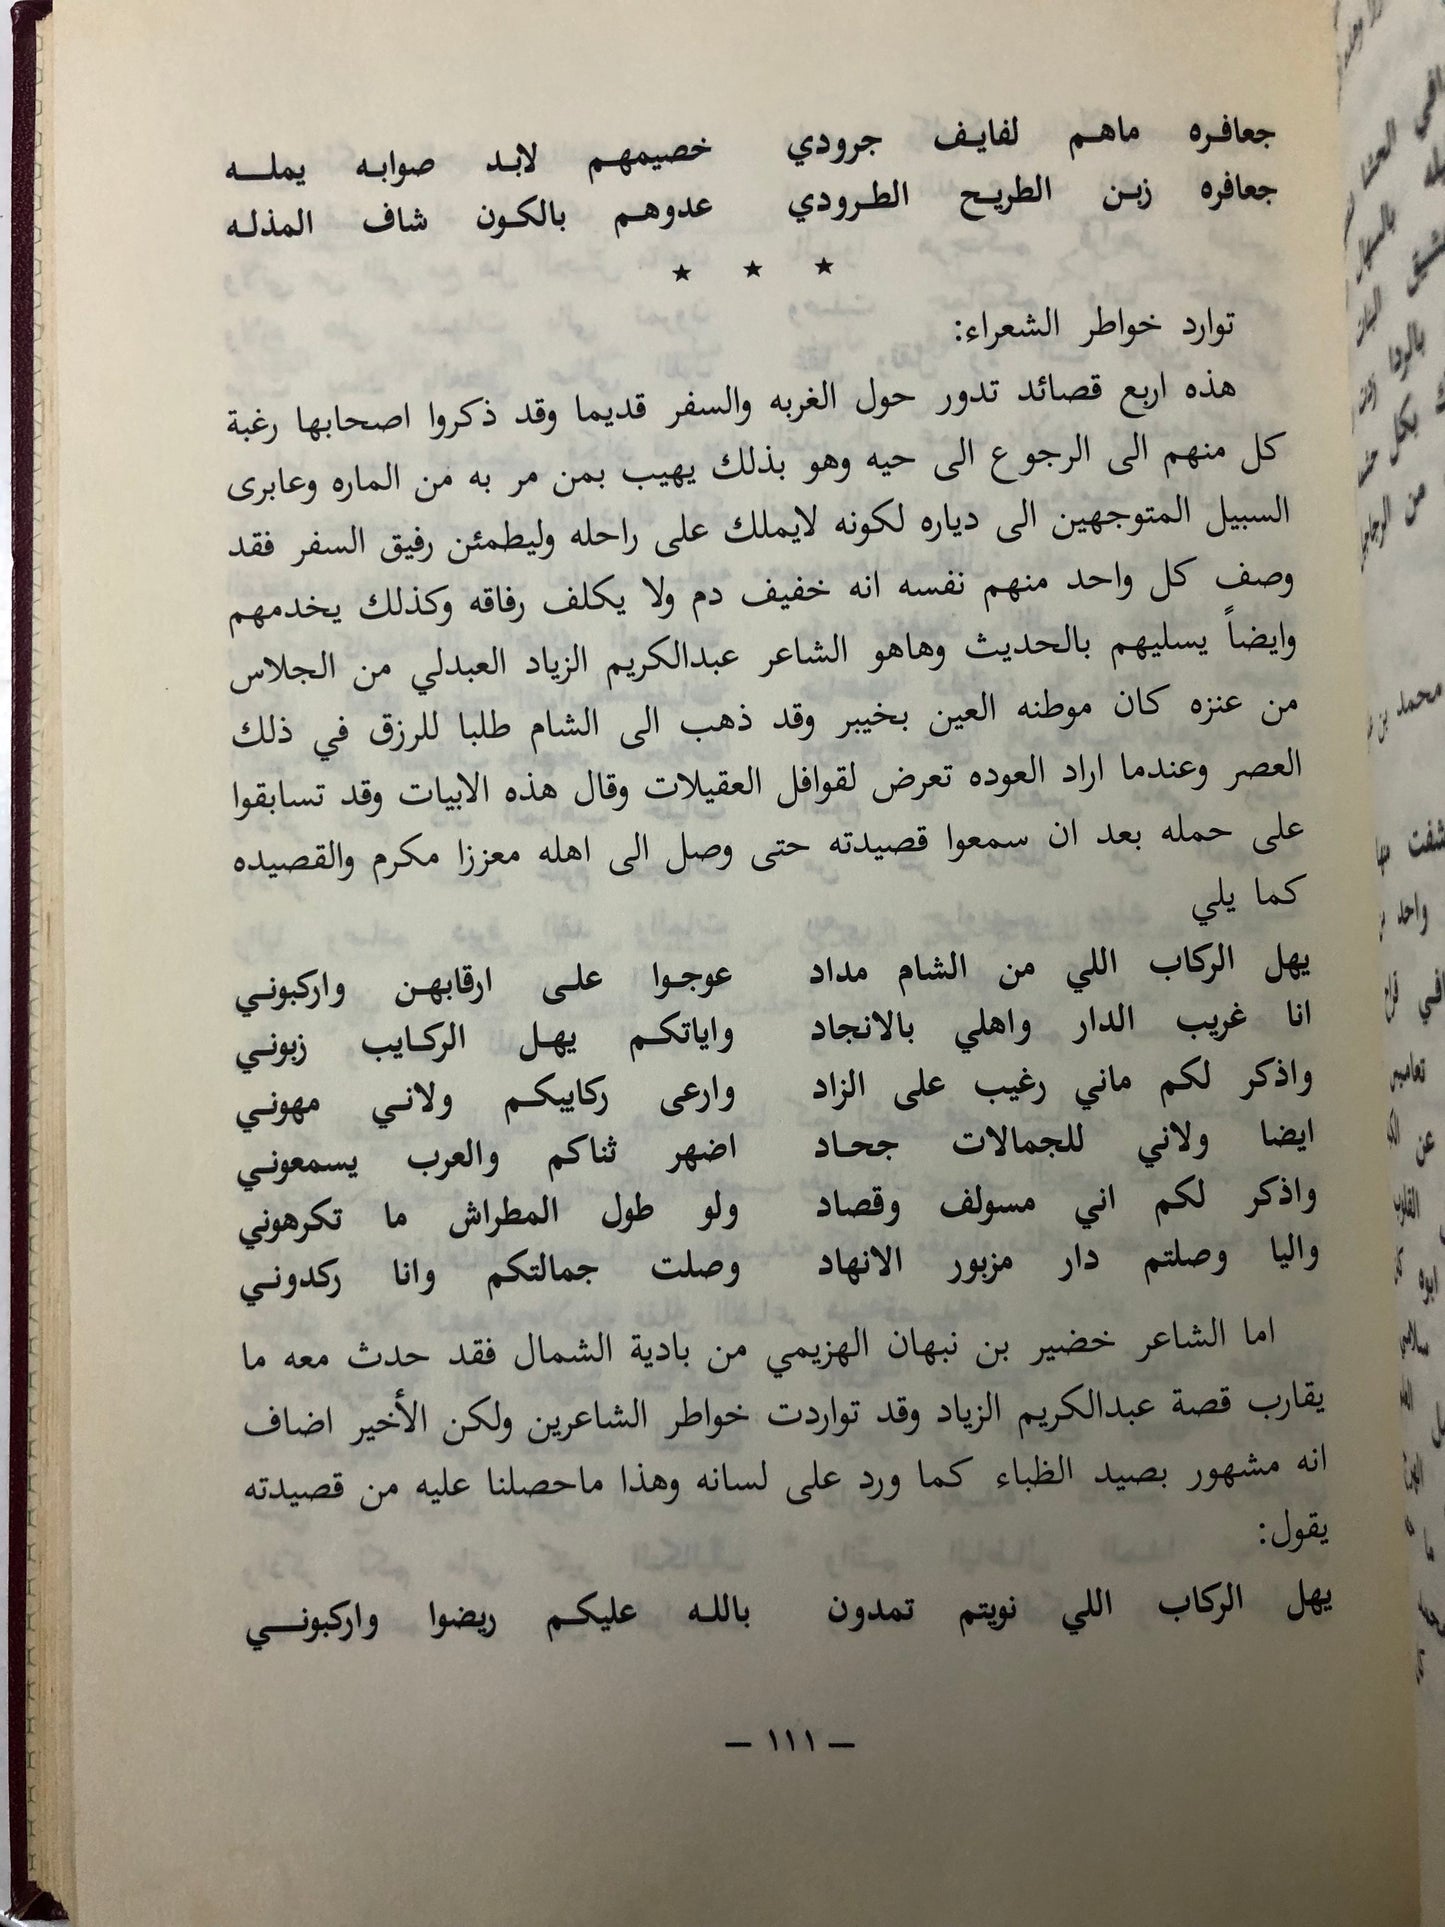 جعافره ماهم لفايف جرودي خصيمهم لابد صوابه يمله
جعافره زبن الطريح الطرودي عدوهم بالكون شاف المذله
★ ★ ★
توارد خواطر الشعراء:
هذه اربع قصائد تدور حول الغربه والسفر قديما وقد ذكروا اصحابها رغبة
كل منهم الى الرجوع الى حيه وهو بذلك يهيب بمن مر به من الماره وعابرى
السبيل المتوجهين الى دياره لكونه لايملك على راحله وليطمئن رفيق السفر فقد
وصف كل واحد منهم نفسه انه خفيف دم ولا يكلف رفاقه وكذلك يخدمهم
وايضاً يسليهم بالحديث وهاهو الشاعر عبدالكريم الزياد العبدلي من الجلاس
من عنزه كان موطنه العين بخيبر وقد ذهب الى الشام طلبا للرزق في ذلك
العصر وعندما اراد العوده تعرض لقوافل العقيلات وقال هذه الابيات وقد تسابقوا
على حمله بعد ان سمعوا قصيدته حتى وصل الى اهله معززا مكرم والقصيده
كما يلي
يهل الركاب اللي من الشام مداد عوجوا على ارقابهن واركبوني
انا غريب الدار واهلي بالانجاد واياتكم يهل الركايب زبوني
واذكر لكم ماني رغيب على الزاد وارعى ركاييكم ولاني مهوني
ايضا ولاني للجمالات جحاد اضهر ثناكم والعرب يسمعوني
واذكر لكم اني مسولف وقصاد ولو طول المطراش ما تكرهوني
واليا وصلتم دار مزبور الانهاد وصلت جمالتكم وانا ركدوني
اما الشاعر خضير بن نبهان الهزيمي من بادية الشمال فقد حدث معه ما
يقارب قصة عبدالكريم الزياد وقد تواردت خواطر الشاعرين ولكن الأخير اضاف
انه مشهور بصيد الظباء كما ورد على لسانه وهذا ماحصلنا عليه من قصيدته
يقول:
يهل الركاب اللي نويتم تمدون بالله عليكم ريضوا واركبوني
— ١١١ —